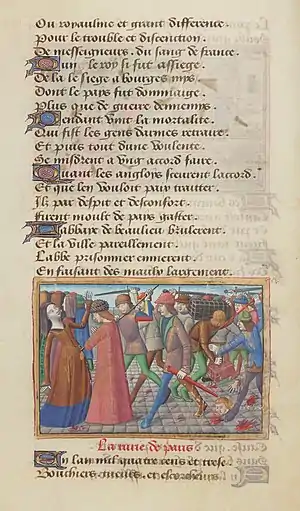 Ou royaulme et grant difference.
Pour le trouble et discention
De messeigneurs. du sang de france.
Puis le roy si fut assiege
De la le siege a bourges mys.
Dont le pays fut dommaige
Plus que de guerre dennemys.
Pendant vint la mortalite
Qui fist les gens darmes retraire.
Et puis tout dune voulente
Se misdrent a ung accord faire.
Quant les anglois sceurent laccord.
Et que len vouloit paix traitter.
Ilz par despit et desconfort.
Furent moult de pays gaster.
Labbaye de beaulieu brulerent.
Et la ville pareillement.
Labbe prisonnier emmenerent.
En faisant des maulx largement.
de paris
En lan mil quatre cens et treze
Bouchiers et escorcheurs